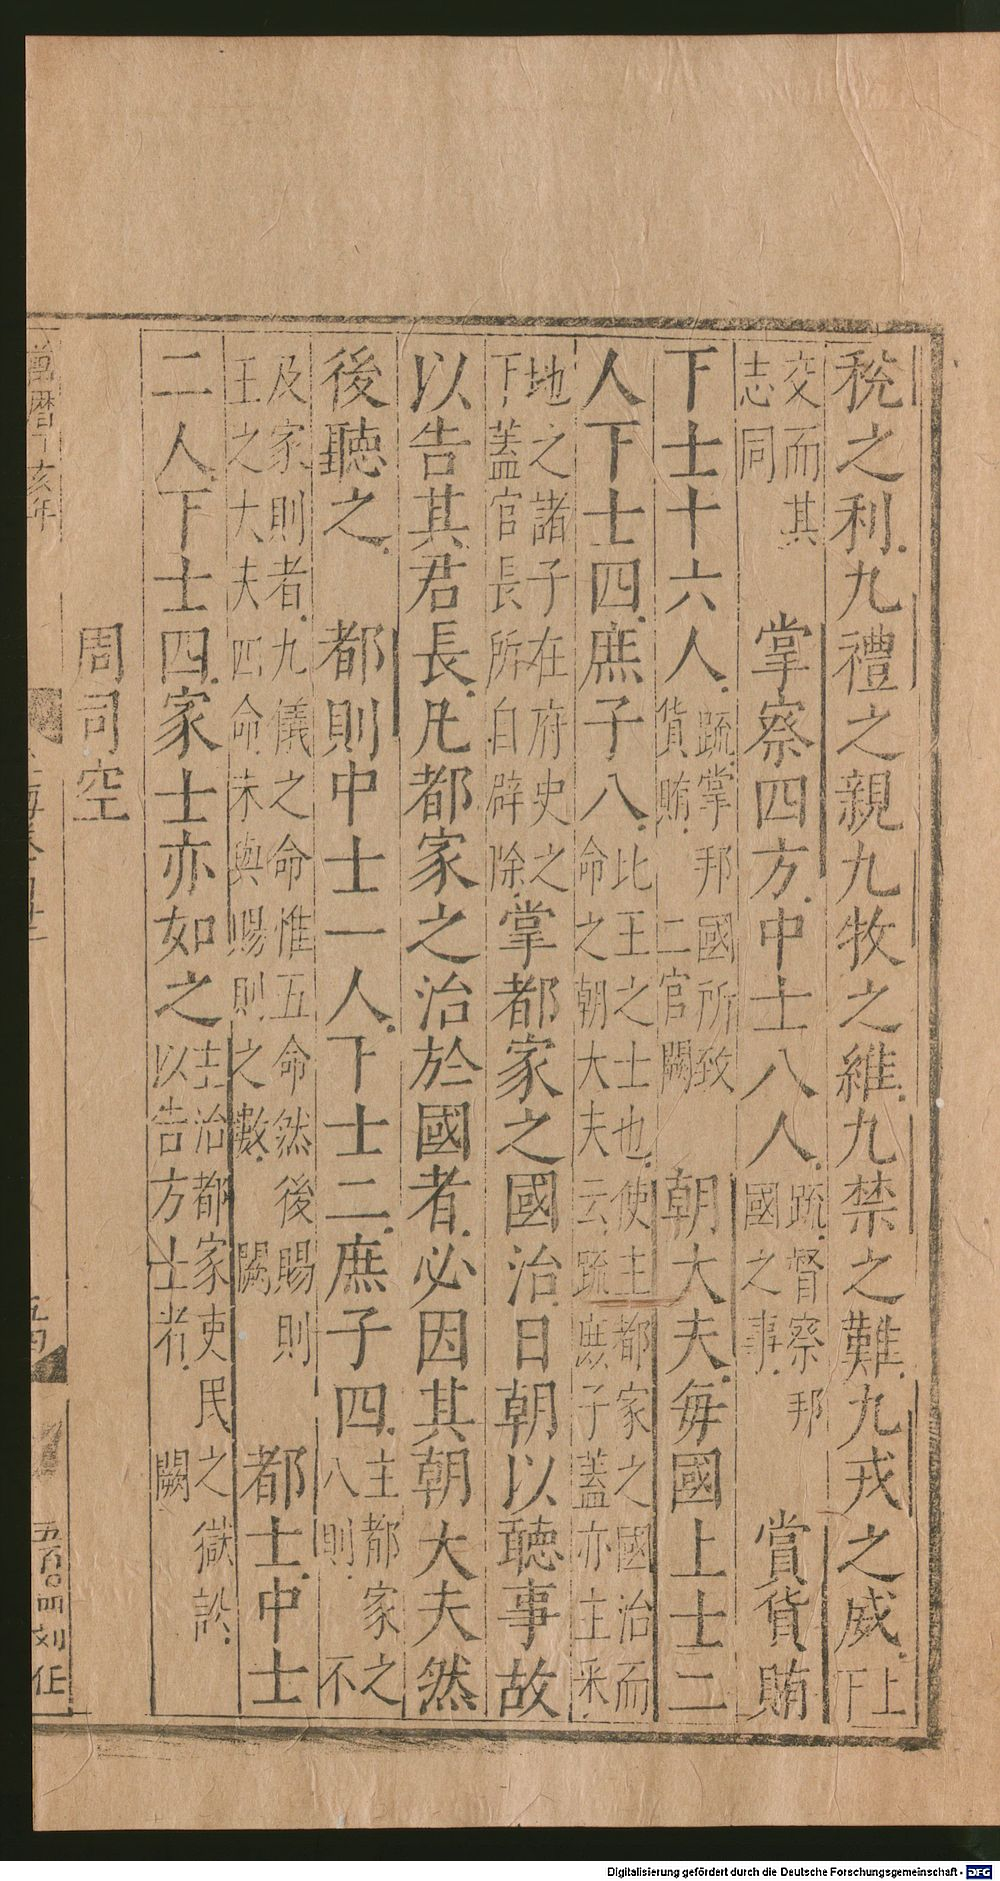 稅之利九禮之親九牧之維九禁之難九戎之威上下
交而其志同　掌察四方中士八人疏督察邦國之事　賞貨賄
下士十六人疏掌邦國所致貨賄二官闕　朝大夫毎國上士二
人下士四庶子八比王之士也使主都家之國治而命之朝大夫云疏庶子蓋亦主采
地之諸子在府史之下蓋官長所自辟除掌都家之國治日朝以聽事故
以告其君長凡都家之治於國者必因其朝大夫然
後聽之　都則中士一人下士二庶子四主都家之八則不
及家則者九儀之命惟五命然後賜則王之大夫四命未與賜則之數闕　都士中士
二人下士四家士亦如之主治都家吏民之獄訟以告方士者闕
周司空
萬曆丁亥年
五百〇四刘任
Digitalisierung gefördert durch die Deutsche Forschungsgemeinschaft - DFG